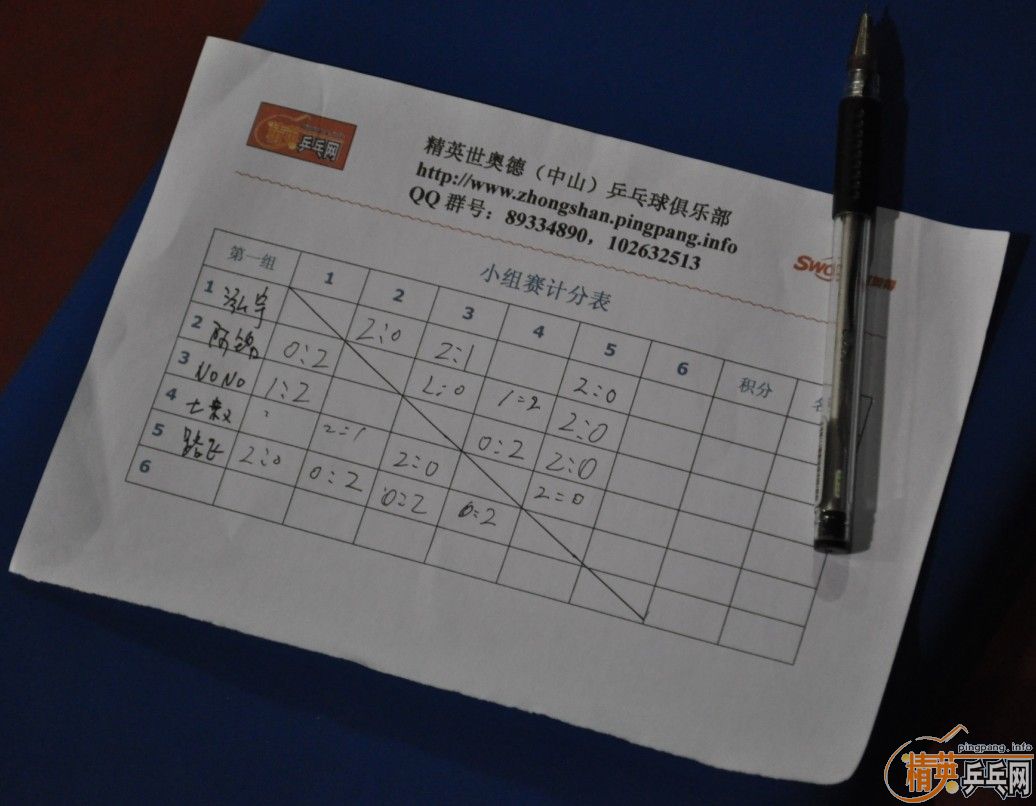 精英乒乓网
精英世奥德（中山）乒乓球俱乐部
http://www.zhongshan.pingpang.info
QQ 群号：89334890，102632513
小组赛计分表
第一组 1 2 3 4 5 6 积分
1 泓宇 2:0 2:1 2:0
2 阿锦 0:2 2:0 1:2 2:0
3 NONO 1:2 0:2 2:0
4 2:1 2:0 2:0
5 2:0 0:2 0:2 0:2
6
pingpang.info
精英乒乓网